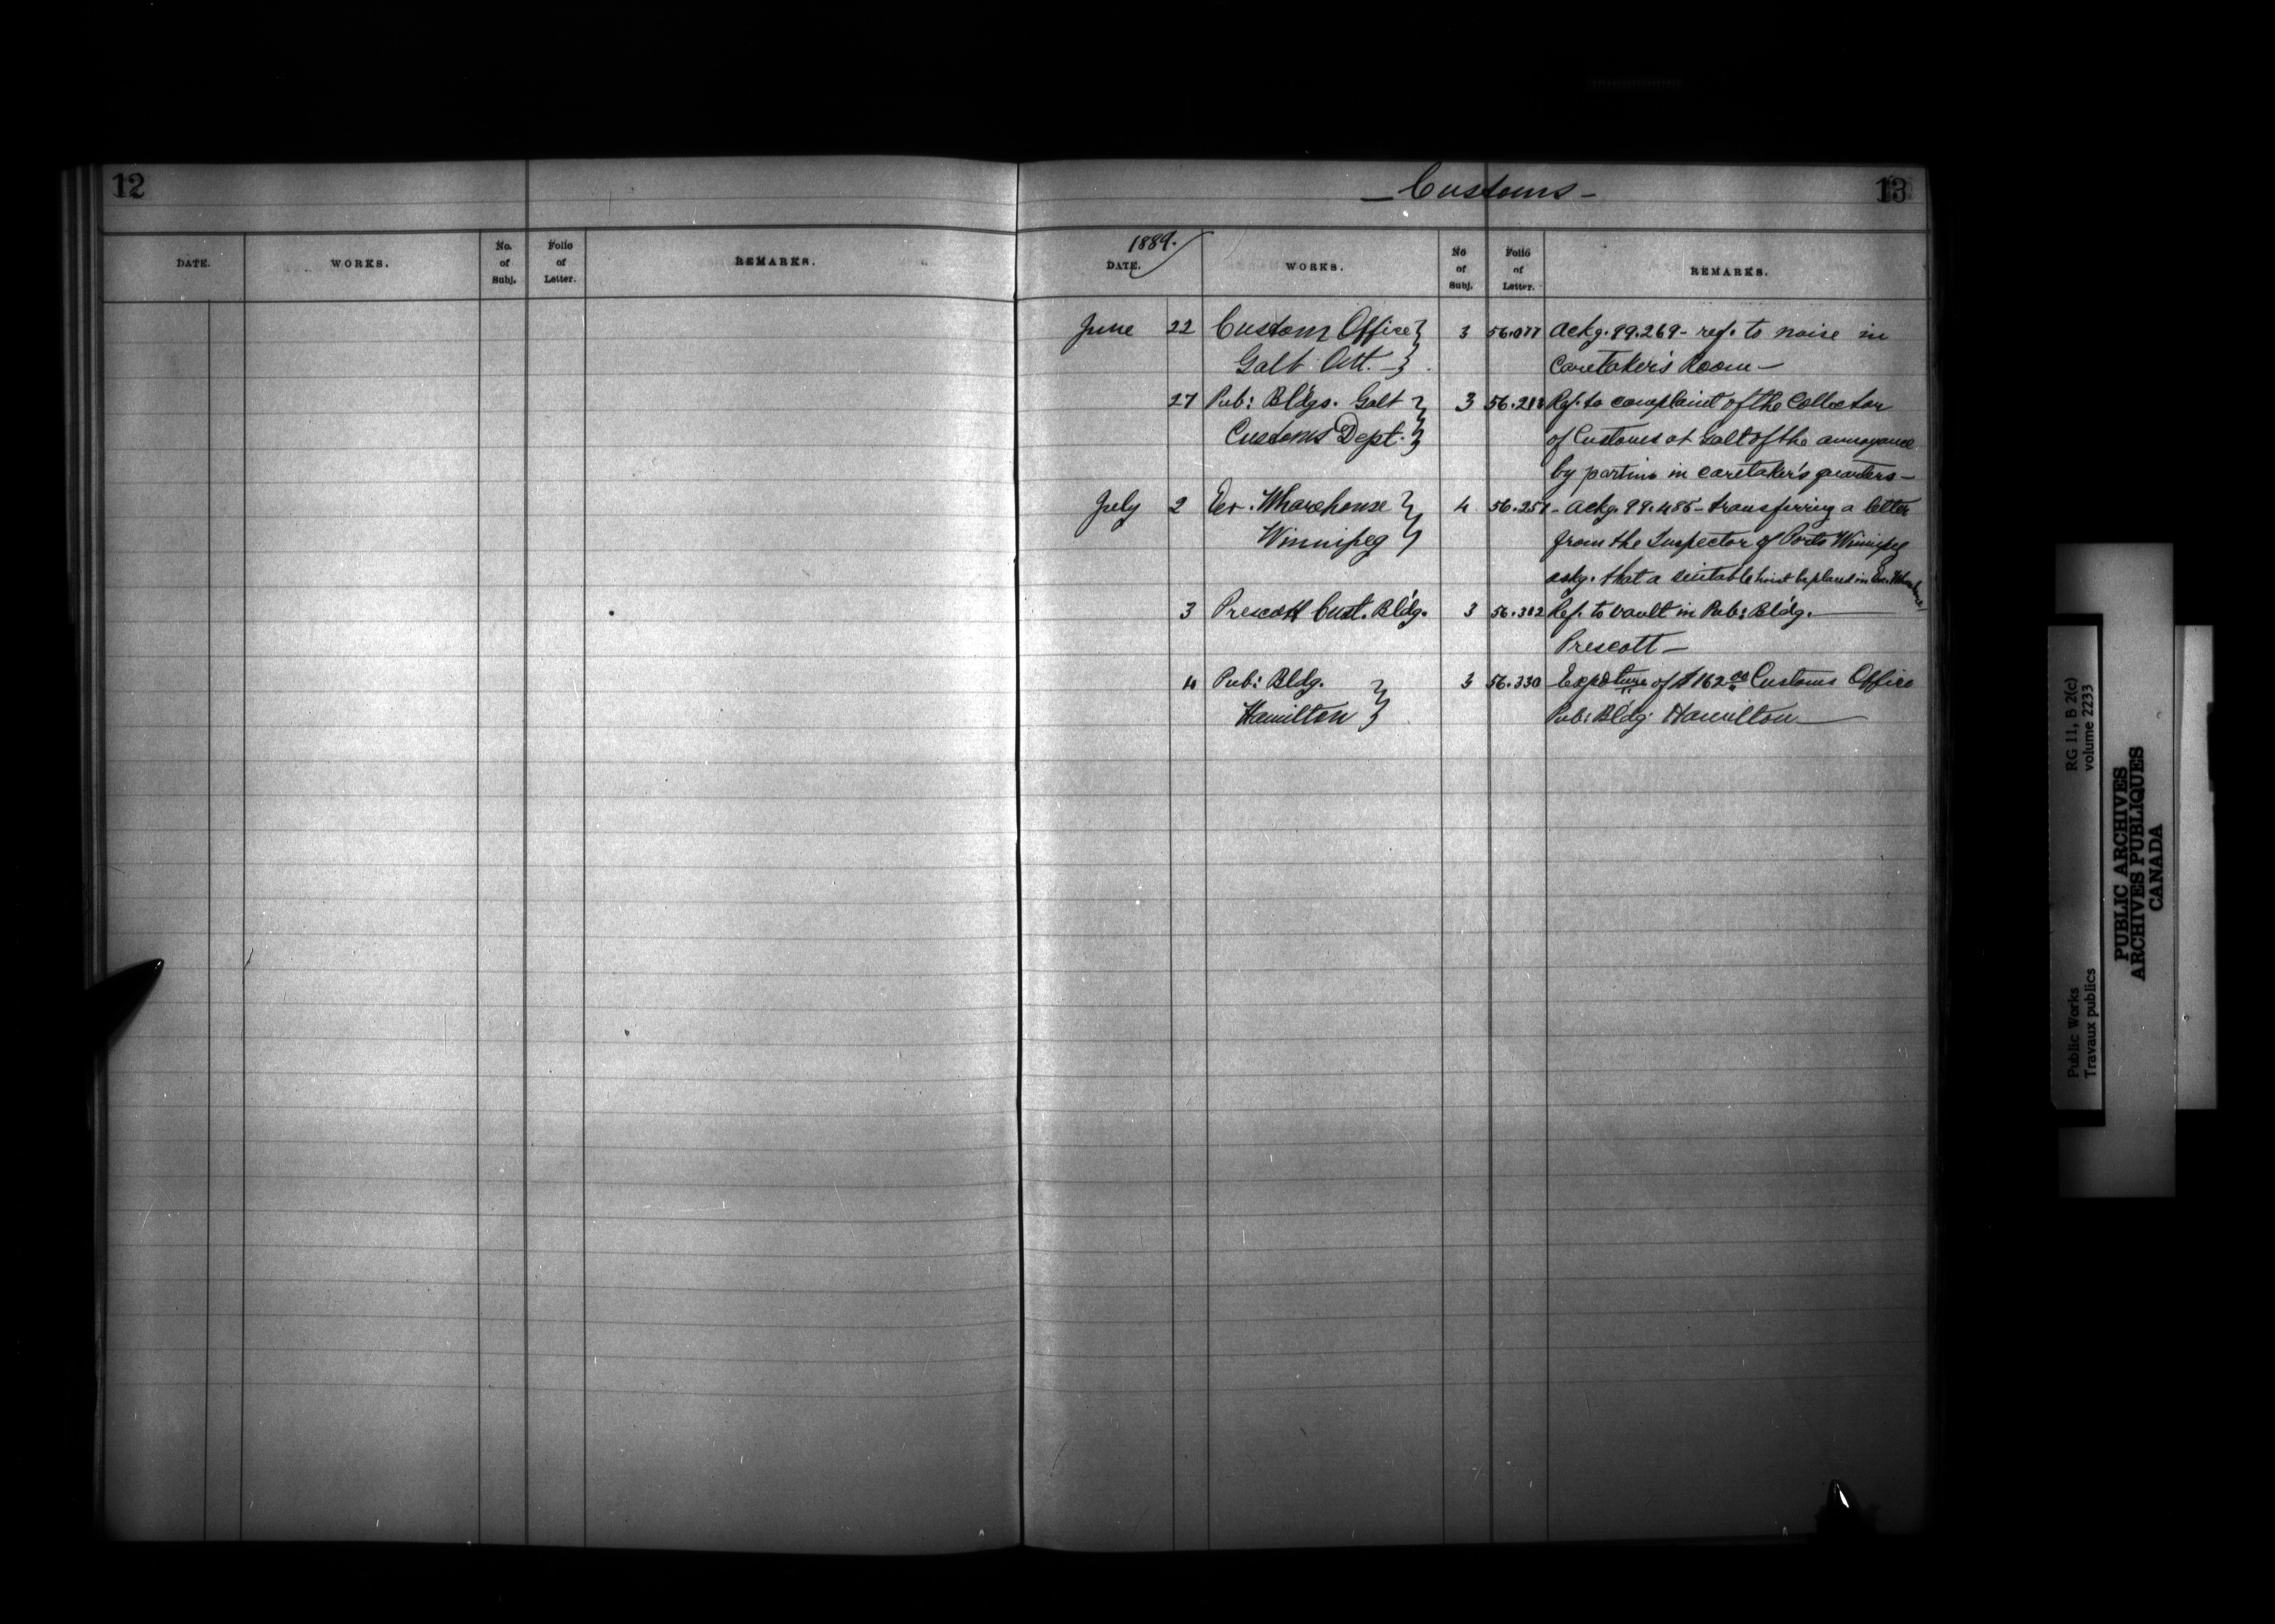 12
DATE. WORKS. No. of Subj. Folio of Letter. REMARKS.
— Customs — 13
1889.
DATE. WORKS. No of Subj. Folio of Letter. REMARKS.
June 22 Custom Office 3 56.077 Ackg. 99.269 - ref. to noise in
Galt Ott. — Caretaker's Room —
27 Pub: Bldgs. Galt 3 56.213 Ref. to complaint of the Collector
Customs Dept. of Customs at Galt of the annoyance
by parties in caretaker's quarters —
July 2 Ex. Wharehouse 4 56.251 - Ackg. 99.485 - transferring a letter
Winnipeg from the Inspector of Ports Winnipeg
askg. that a suitable hoist be placed in Ex. Wharehouse
3 Prescott Cust. Bldg. 3 56.312 Ref. to vault in Pub: Bldg.
Prescott —
4 Pub: Bldg. 3 56.330 Expdture of $162.00 Customs Office
Hamilton Pub: Bldg. Hamilton —
Public Works RG 11, B 2(c)
Travaux publics volume 2233
PUBLIC ARCHIVES
ARCHIVES PUBLIQUES
CANADA